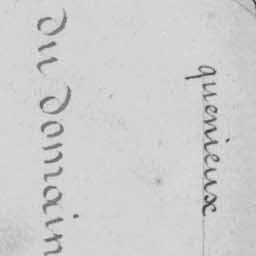 quenieux
du domain